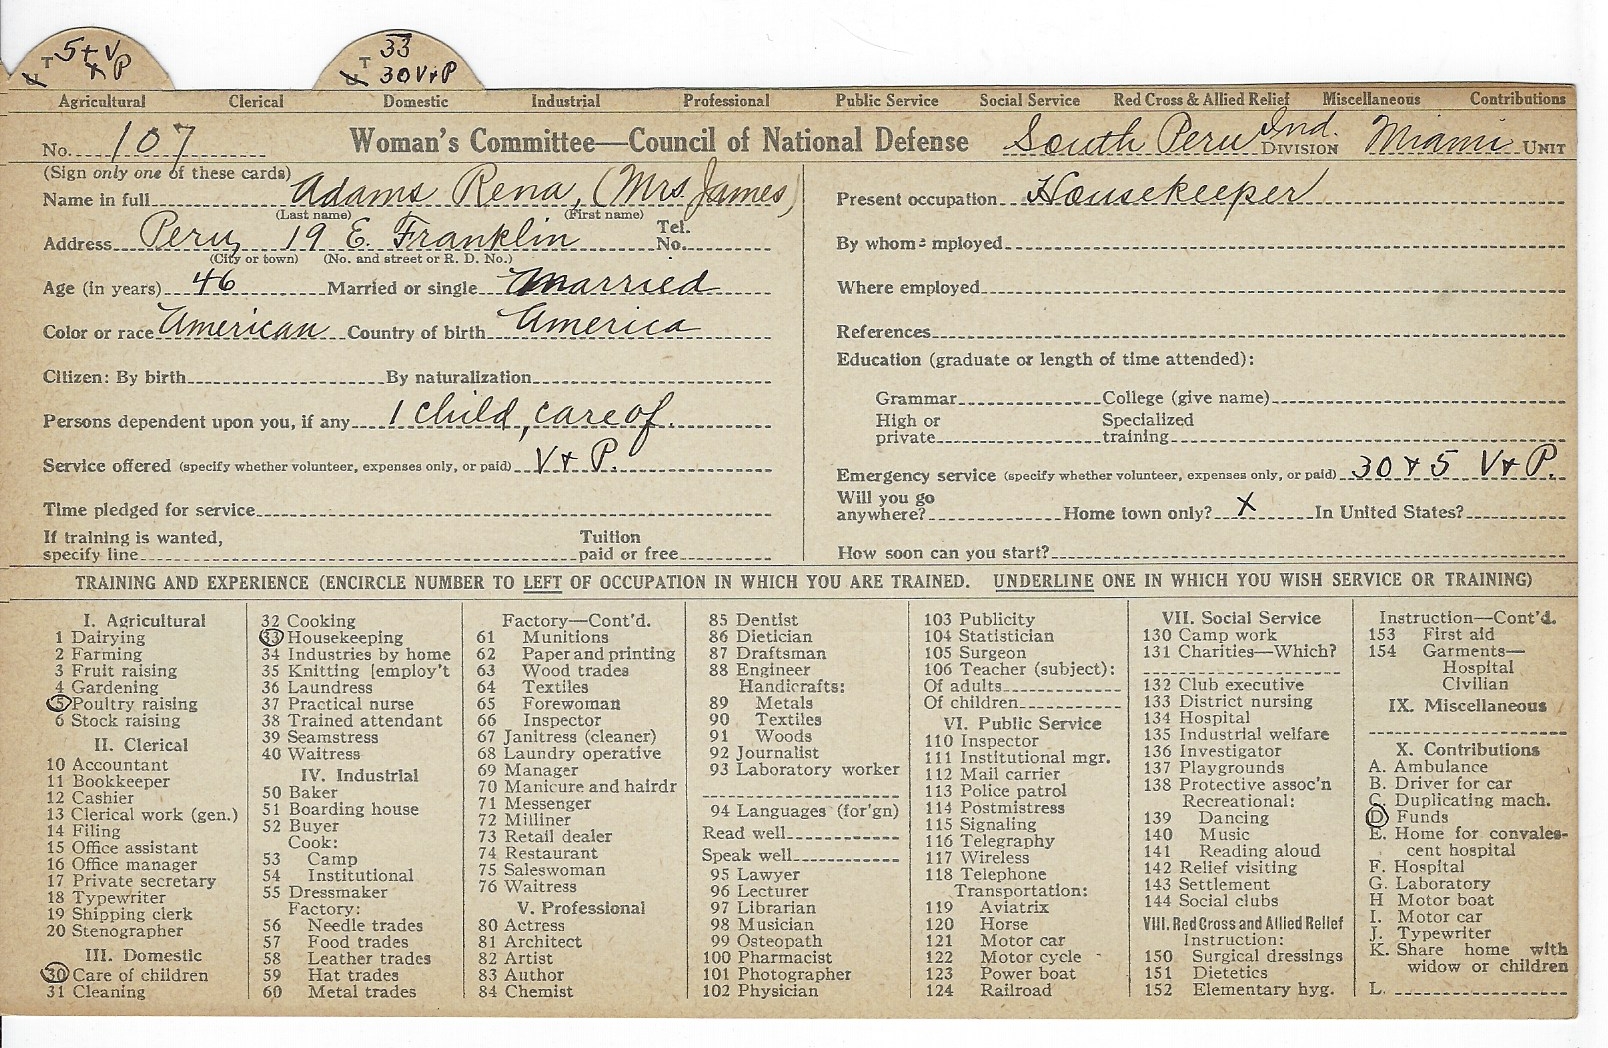 5 + V + P
T
U
33
T 30 V + P
U
Agricultural Clerical Domestic Industrial Professional Public Service Social Service Red Cross & Allied Relief Miscellaneous Contributions
No. 107 Woman's Committee—Council of National Defense South Peru Ind. DIVISION Miami UNIT
(Sign only one of these cards)
Name in full Adams Rena, (Mrs. James)
(Last name) (First name)
Address Peru, 19 E. Franklin Tel. No.
(City or town) (No. and street or R. D. No.)
Age (in years) 46 Married or single Married
Color or race American Country of birth America
Citizen: By birth By naturalization
Persons dependent upon you, if any 1 child, care of.
Service offered (specify whether volunteer, expenses only, or paid) V + P.
Time pledged for service
If training is wanted, specify line Tuition paid or free
Present occupation Housekeeper
By whom employed
Where employed
References
Education (graduate or length of time attended):
Grammar College (give name)
High or private Specialized training
Emergency service (specify whether volunteer, expenses only, or paid) 30 + 5 V + P.
Will you go anywhere? Home town only? X In United States?
How soon can you start?
TRAINING AND EXPERIENCE (ENCIRCLE NUMBER TO LEFT OF OCCUPATION IN WHICH YOU ARE TRAINED. UNDERLINE ONE IN WHICH YOU WISH SERVICE OR TRAINING)
I. Agricultural
1 Dairying
2 Farming
3 Fruit raising
4 Gardening
5 Poultry raising
6 Stock raising
II. Clerical
10 Accountant
11 Bookkeeper
12 Cashier
13 Clerical work (gen.)
14 Filing
15 Office assistant
16 Office manager
17 Private secretary
18 Typewriter
19 Shipping clerk
20 Stenographer
III. Domestic
30 Care of children
31 Cleaning
32 Cooking
33 Housekeeping
34 Industries by home
35 Knitting [employ't
36 Laundress
37 Practical nurse
38 Trained attendant
39 Seamstress
40 Waitress
IV. Industrial
50 Baker
51 Boarding house
52 Buyer
Cook:
53 Camp
54 Institutional
55 Dressmaker
Factory:
56 Needle trades
57 Food trades
58 Leather trades
59 Hat trades
60 Metal trades
Factory—Cont'd.
61 Munitions
62 Paper and printing
63 Wood trades
64 Textiles
65 Forewoman
66 Inspector
67 Janitress (cleaner)
68 Laundry operative
69 Manager
70 Manicure and hairdr
71 Messenger
72 Milliner
73 Retail dealer
74 Restaurant
75 Saleswoman
76 Waitress
V. Professional
80 Actress
81 Architect
82 Artist
83 Author
84 Chemist
85 Dentist
86 Dietician
87 Draftsman
88 Engineer
Handicrafts:
89 Metals
90 Textiles
91 Woods
92 Journalist
93 Laboratory worker
94 Languages (for'gn)
Read well
Speak well
95 Lawyer
96 Lecturer
97 Librarian
98 Musician
99 Osteopath
100 Pharmacist
101 Photographer
102 Physician
103 Publicity
104 Statistician
105 Surgeon
106 Teacher (subject):
Of adults
Of children
VI. Public Service
110 Inspector
111 Institutional mgr.
112 Mail carrier
113 Police patrol
114 Postmistress
115 Signaling
116 Telegraphy
117 Wireless
118 Telephone
Transportation:
119 Aviatrix
120 Horse
121 Motor car
122 Motor cycle
123 Power boat
124 Railroad
VII. Social Service
130 Camp work
131 Charities—Which?
132 Club executive
133 District nursing
134 Hospital
135 Industrial welfare
136 Investigator
137 Playgrounds
138 Protective assoc'n
Recreational:
139 Dancing
140 Music
141 Reading aloud
142 Relief visiting
143 Settlement
144 Social clubs
VIII. Red Cross and Allied Relief
Instruction:
150 Surgical dressings
151 Dietetics
152 Elementary hyg.
Instruction—Cont'd.
153 First aid
154 Garments—
Hospital
Civilian
IX. Miscellaneous
X. Contributions
A. Ambulance
B. Driver for car
C. Duplicating mach.
D Funds
E. Home for convales-
cent hospital
F. Hospital
G. Laboratory
H Motor boat
I. Motor car
J. Typewriter
K. Share home with
widow or children
L.